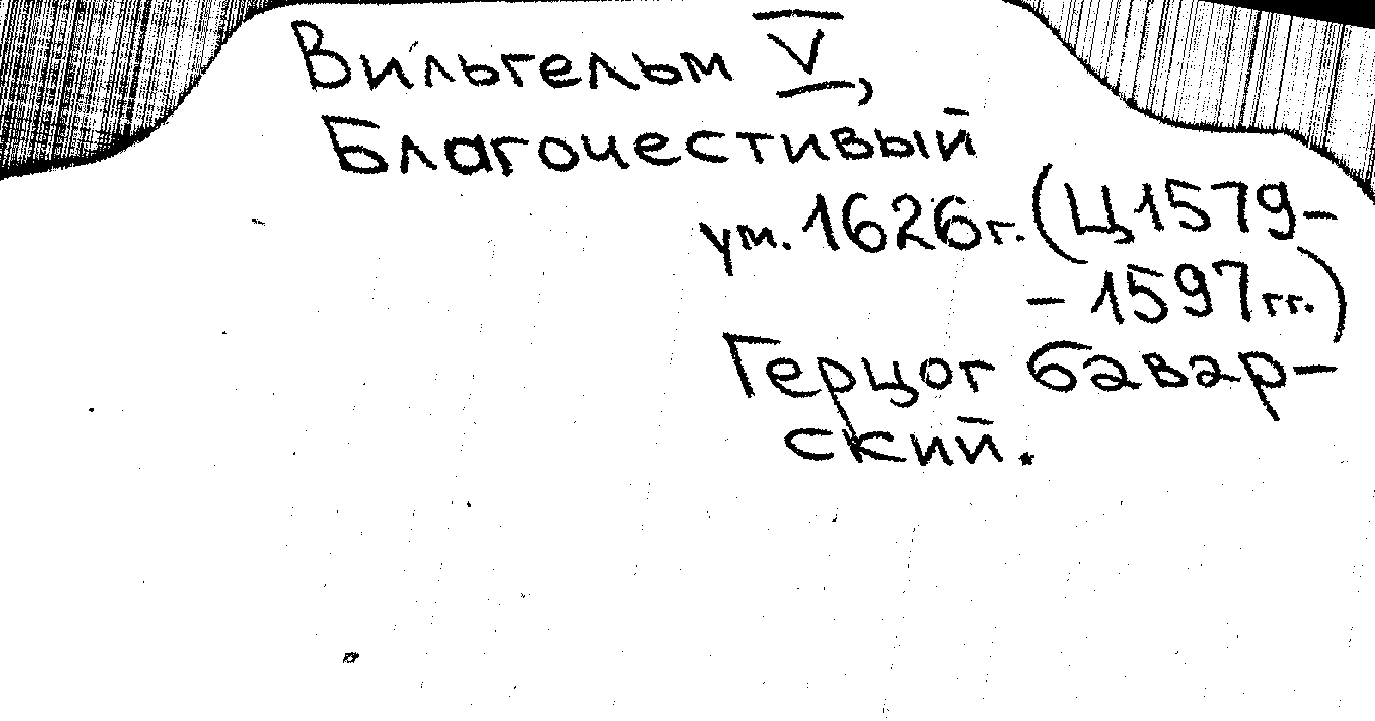 Вильгельм V,
Благочестивый
ум. 1626 г. (Ц 1579-
- 1597 гг.)
Герцог бавар-
ский.